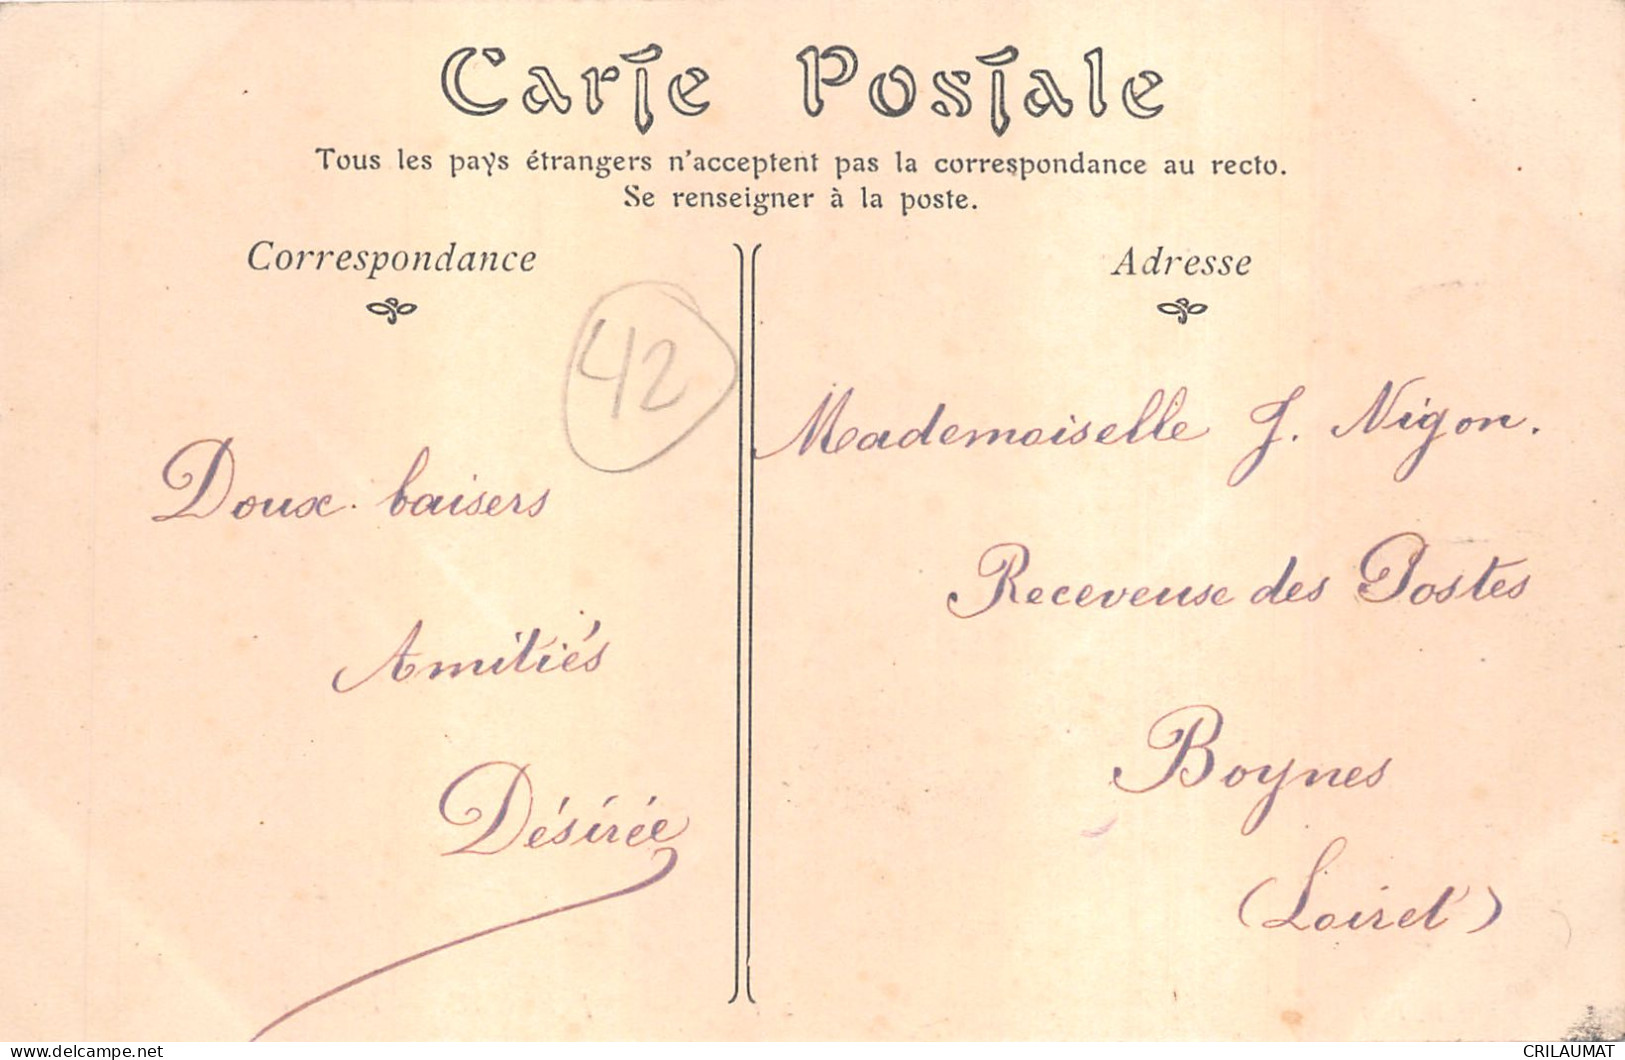 Carte Postale
Tous les pays étrangers n'acceptent pas la correspondance au recto.
Se renseigner à la poste.
Correspondance
Adresse
42
Doux baisers
Amitiés
Désirée
Mademoiselle J. Nigon.
Receveuse des Postes
Boynes
(Loiret)
delcampe.net
CRILAUMAT